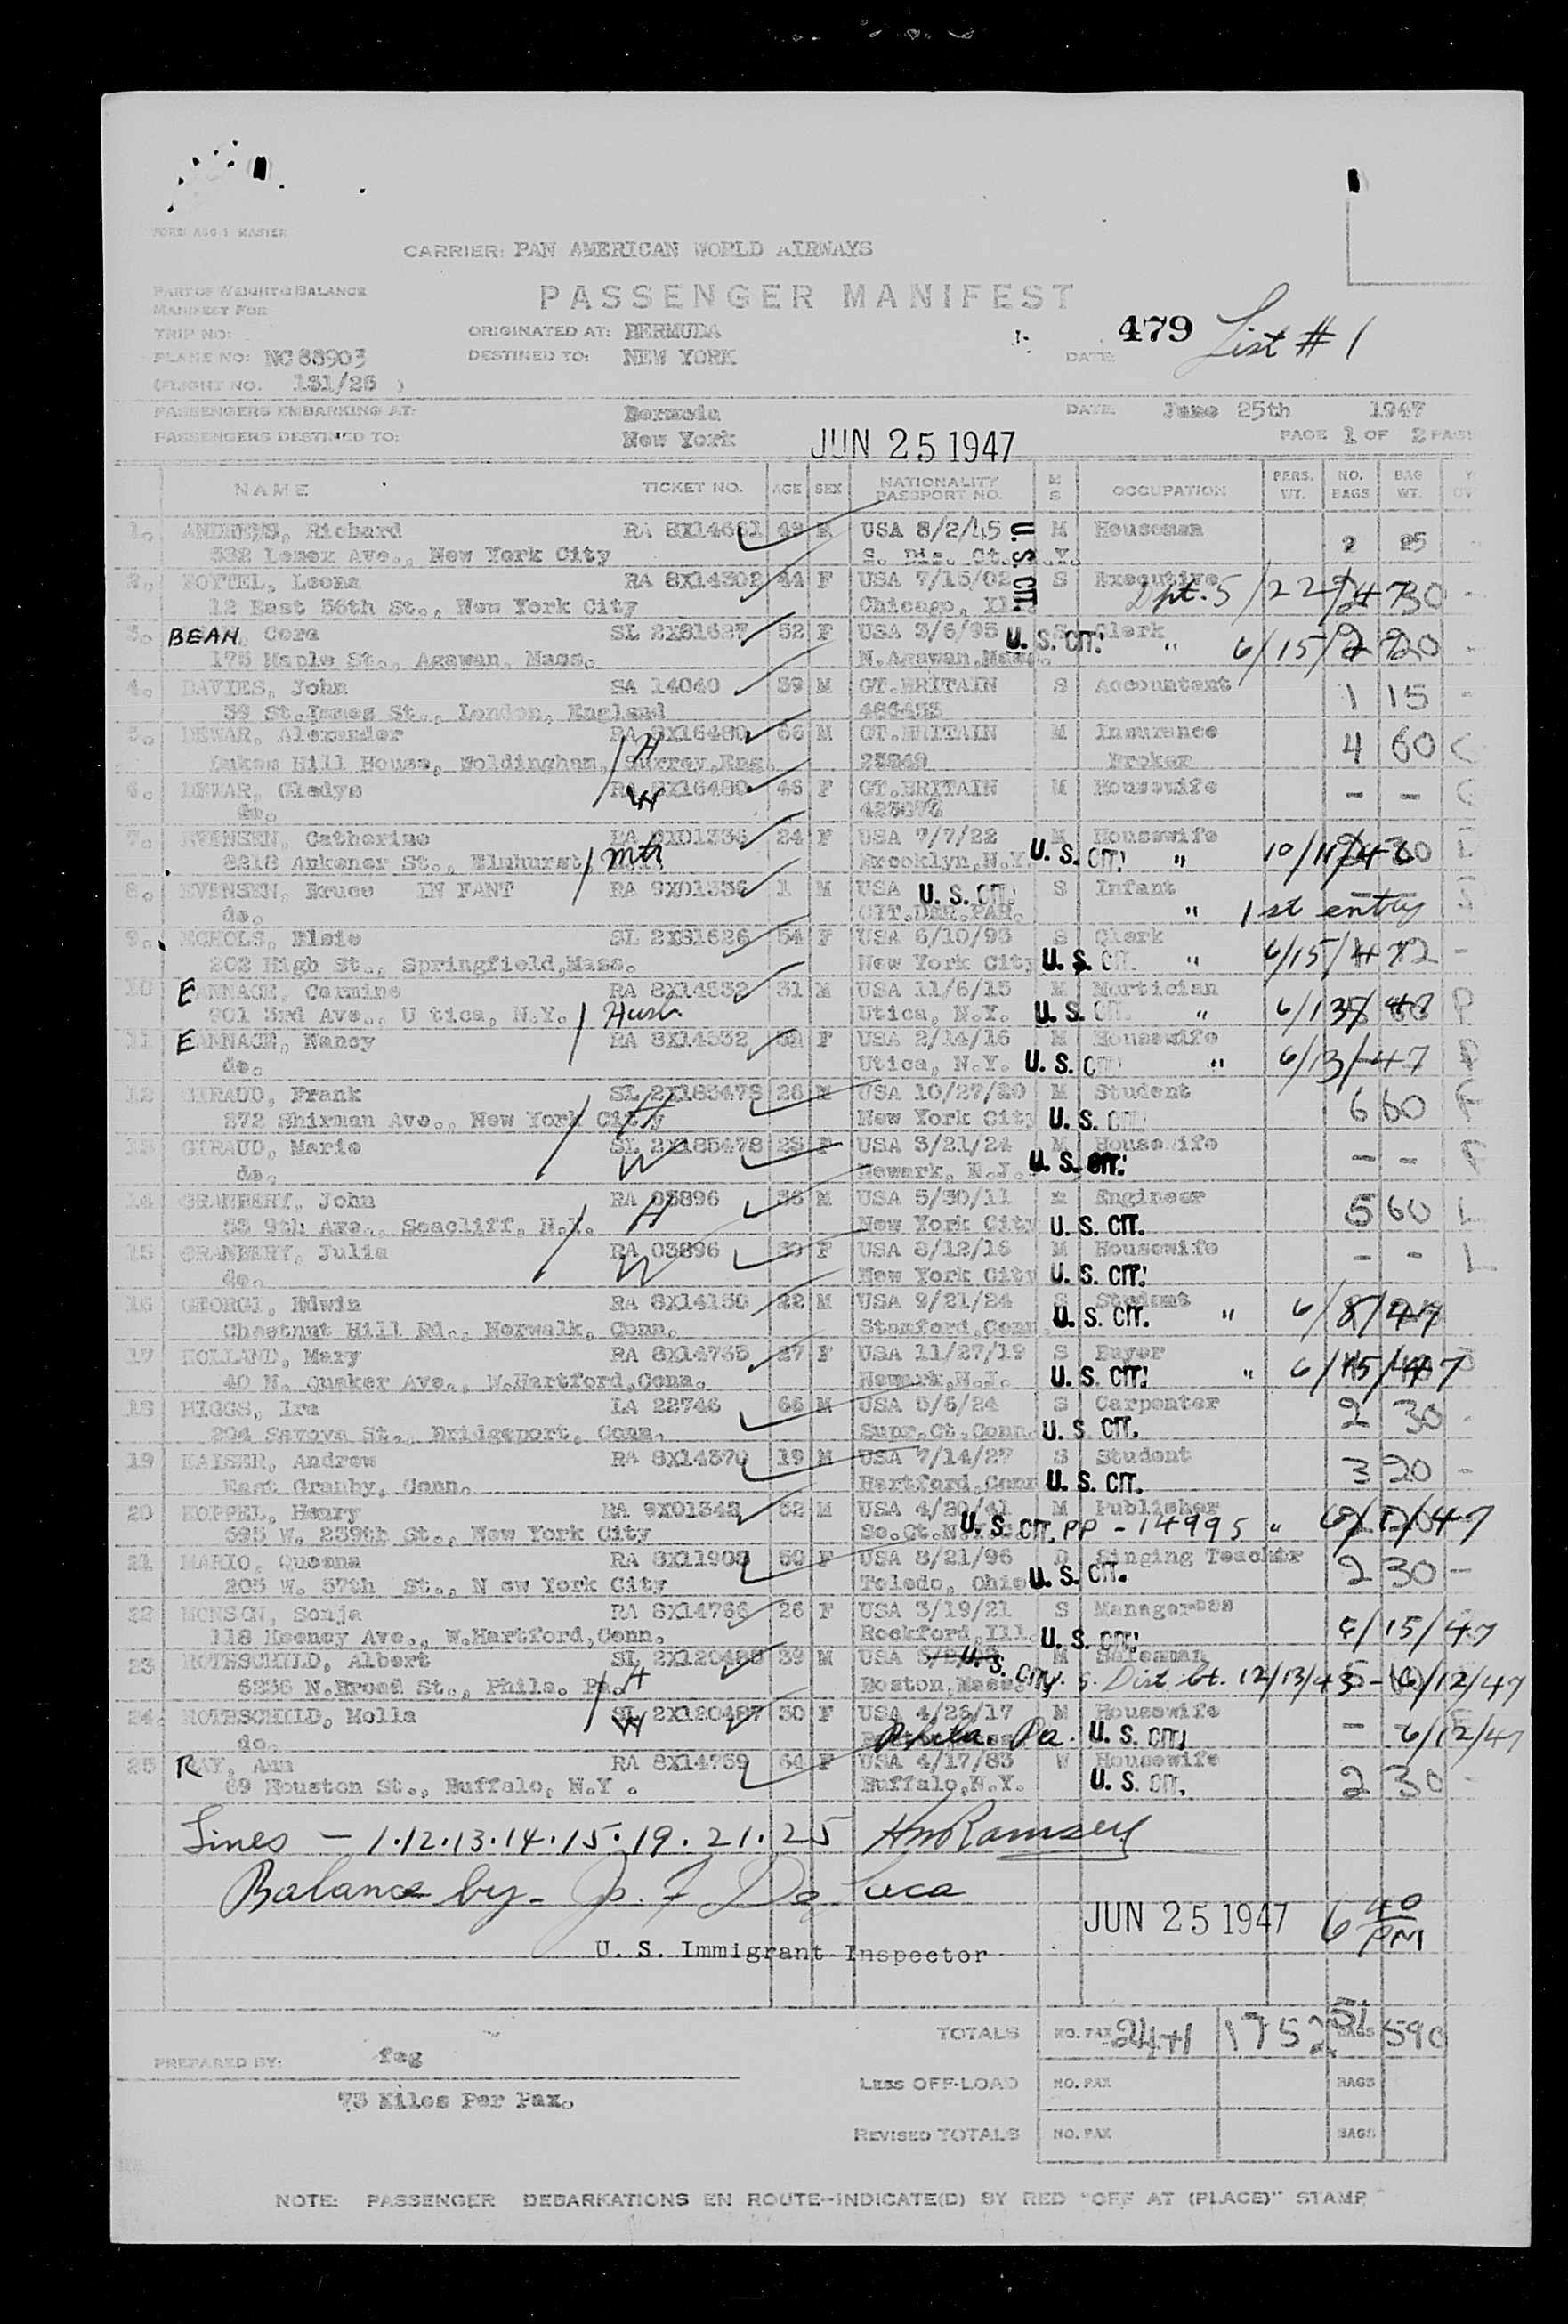 FORM ASG 1 MASTER
CARRIER: PAN AMERICAN WORLD AIRWAYS
PART OF WEIGHT & BALANCE
MANIFEST FOR
PASSENGER MANIFEST
TRIP NO:
ORIGINATED AT: BERMUDA
479 List # 1
PLANE NO: NC 88903
DESTINED TO: NEW YORK
DATE:
(FLIGHT NO. 131/25 )
PASSENGERS EMBARKING AT: Bermuda
DATE: June 25th 1947
PASSENGERS DESTINED TO: New York JUN 25 1947 PAGE 1 OF 2 PAGES
NAME TICKET NO. AGE SEX NATIONALITY PASSPORT NO. M S OCCUPATION PERS. WT. NO. BAGS BAG WT.
1. ANDREWS, Richard RA 8X14661 49 M USA 8/2/45 U. S. CIT. M Houseman 2 25
532 Lenox Ave., New York City S. Dis. Ct. N.Y.
2. Leona RA 8X14302 44 F USA 7/15/02 S Executive 30 -
12 East 56th St., New York City Chicago, Ill. Dpt. 5/22/47
3. BEAN, Cora SL 2X81627 52 F USA 3/6/95 U. S. CIT. S Clerk 20 -
175 Maple St., Agawan, Mass. N.Agawan,Mass. " 6/15/47
4. DAVIES, John SA 14040 39 M GT.BRITAIN S Accountant 1 15 -
39 St.James St., London, England
5. DEWAR, Alexander RA 8X16480 66 M GT.BRITAIN M Insurance 4 60
Dukes Hill House, Woldingham, Surrey,Eng. Broker
H
6. DEWAR, Gladys RA 8X16480 46 F GT.BRITAIN M Housewife - -
do. W
7. EVENSEN, Catherine RA 9X01336 24 F USA 7/7/22 M Housewife 30
8218 Ankener St., Elmhurst, mth Brooklyn,N.Y. U. S. CIT. "
8. EVENSEN, Bruce INFANT RA 9X01336 1 M USA U. S. CIT. S Infant
do. CIT.DAR.PAR. " 1st entry
9. ECHOLS, Elsie SL 2X81626 54 F USA 6/10/93 S Clerk -
202 High St., Springfield,Mass. New York City U. S. CIT. " 6/15/47
10 EANNACE, Carmine RA 8X14532 31 M USA 11/6/15 M Mortician
901 3rd Ave., U tica, N.Y. Hush Utica, N.Y. U. S. CIT. " 6/13/47
11 EANNACE, Nancy RA 8X14532 F USA 2/14/16 M Housewife
do. Utica, N.Y. U. S. CIT. " 6/13/47
12 GIRAUD, Frank SL 2X185478 26 M USA 10/27/20 M Student 6 60
272 Shirman Ave., New York City H New York City U. S. CIT.
13 GIRAUD, Marie SL 2X185478 23 F USA 3/21/24 M Housewife - -
do. W Newark, N.J. U. S. CIT.
14 GRANBERY, John RA 03896 36 M USA 5/30/11 Engineer 5 60 L
53 9th Ave., Seacliff, N.Y. H New York City U. S. CIT.
15 GRANBERY, Julia RA 03896 30 F USA 8/12/16 M Housewife - - L
do. W New York City U. S. CIT.
16 GEORGI, Edwin RA 8X14150 22 M USA 9/21/24 S Student
Chestnut Hill Rd., Norwalk, Conn. Stamford,Conn. U. S. CIT. " 6/8/47
17 HOLLAND, Mary RA 8X14765 27 F USA 11/27/19 S Buyer
40 N. Quaker Ave., W.Hartford,Conn. U. S. CIT. " 6/15/47
18 HIGGS, Ira LA 22746 66 M USA 5/6/24 S Carpenter 2 30 -
204 St., Bridgeport, Conn. Supr.Ct.Conn. U. S. CIT.
19 KAISER, Andrew RA 8X14370 19 M USA 7/14/27 S Student 3 20 -
East Granby, Conn. Hartford,Conn U. S. CIT.
20 KOPPEL, Henry RA 9X01342 52 M USA 4/20/41 M Publisher
595 W. 239th St., New York City So.Ct.N.Y. U. S. CIT. PP - 14995 " 47
21 MARIO, Queena RA 8X11908 50 F USA 8/21/96 D Singing Teacher 2 30 -
205 W. 57th St., N ew York City Toledo, Ohio U. S. CIT.
22 MONSON, Sonja RA 8X14766 26 F USA 3/19/21 S Manageress
118 Keeney Ave., W.Hartford,Conn. Rockford,Ill. U. S. CIT. 6/15/47
23 ROTHSCHILD, Albert SL 2X120486 39 M USA U. S. CIT. M Salesman
6236 N.Broad St., Phila. Pa. H Boston,Mass. S. Dist. Ct. 12/13/43 - 6/12/47
24. ROTHSCHILD, Molla SL 2X120487 30 F USA 4/26/17 M Housewife -
do. W Phila. Pa. U. S. CIT. 6/12/47
25 RAY, Ann RA 8X14759 64 F USA 4/17/83 W Housewife 2 30 -
69 Houston St., Buffalo, N.Y. Buffalo,N.Y. U. S. CIT.
Lines - 1.12.13.14.15.19.21.25 HmRamsey
Balance by - Jo. F De Luca
JUN 25 1947 6 40 PM
U. S. Immigrant Inspector
TOTALS NO. PAX 24+1 1752 51 BAGS 590
PREPARED BY: feg
LESS OFF-LOAD NO. PAX BAGS
73 Kilos Per Pax.
REVISED TOTALS NO. PAX BAGS
NOTE: PASSENGER DEBARKATIONS EN ROUTE--INDICATE(D) BY RED "OFF AT (PLACE)" STAMP